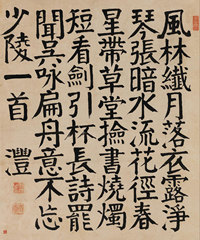 風林纖月落衣露淨
琴張暗水流花徑春
星帶草堂撿書燒燭
短看劍引杯長詩罷
聞吳咏扁舟意不忘
少陵一首 灃